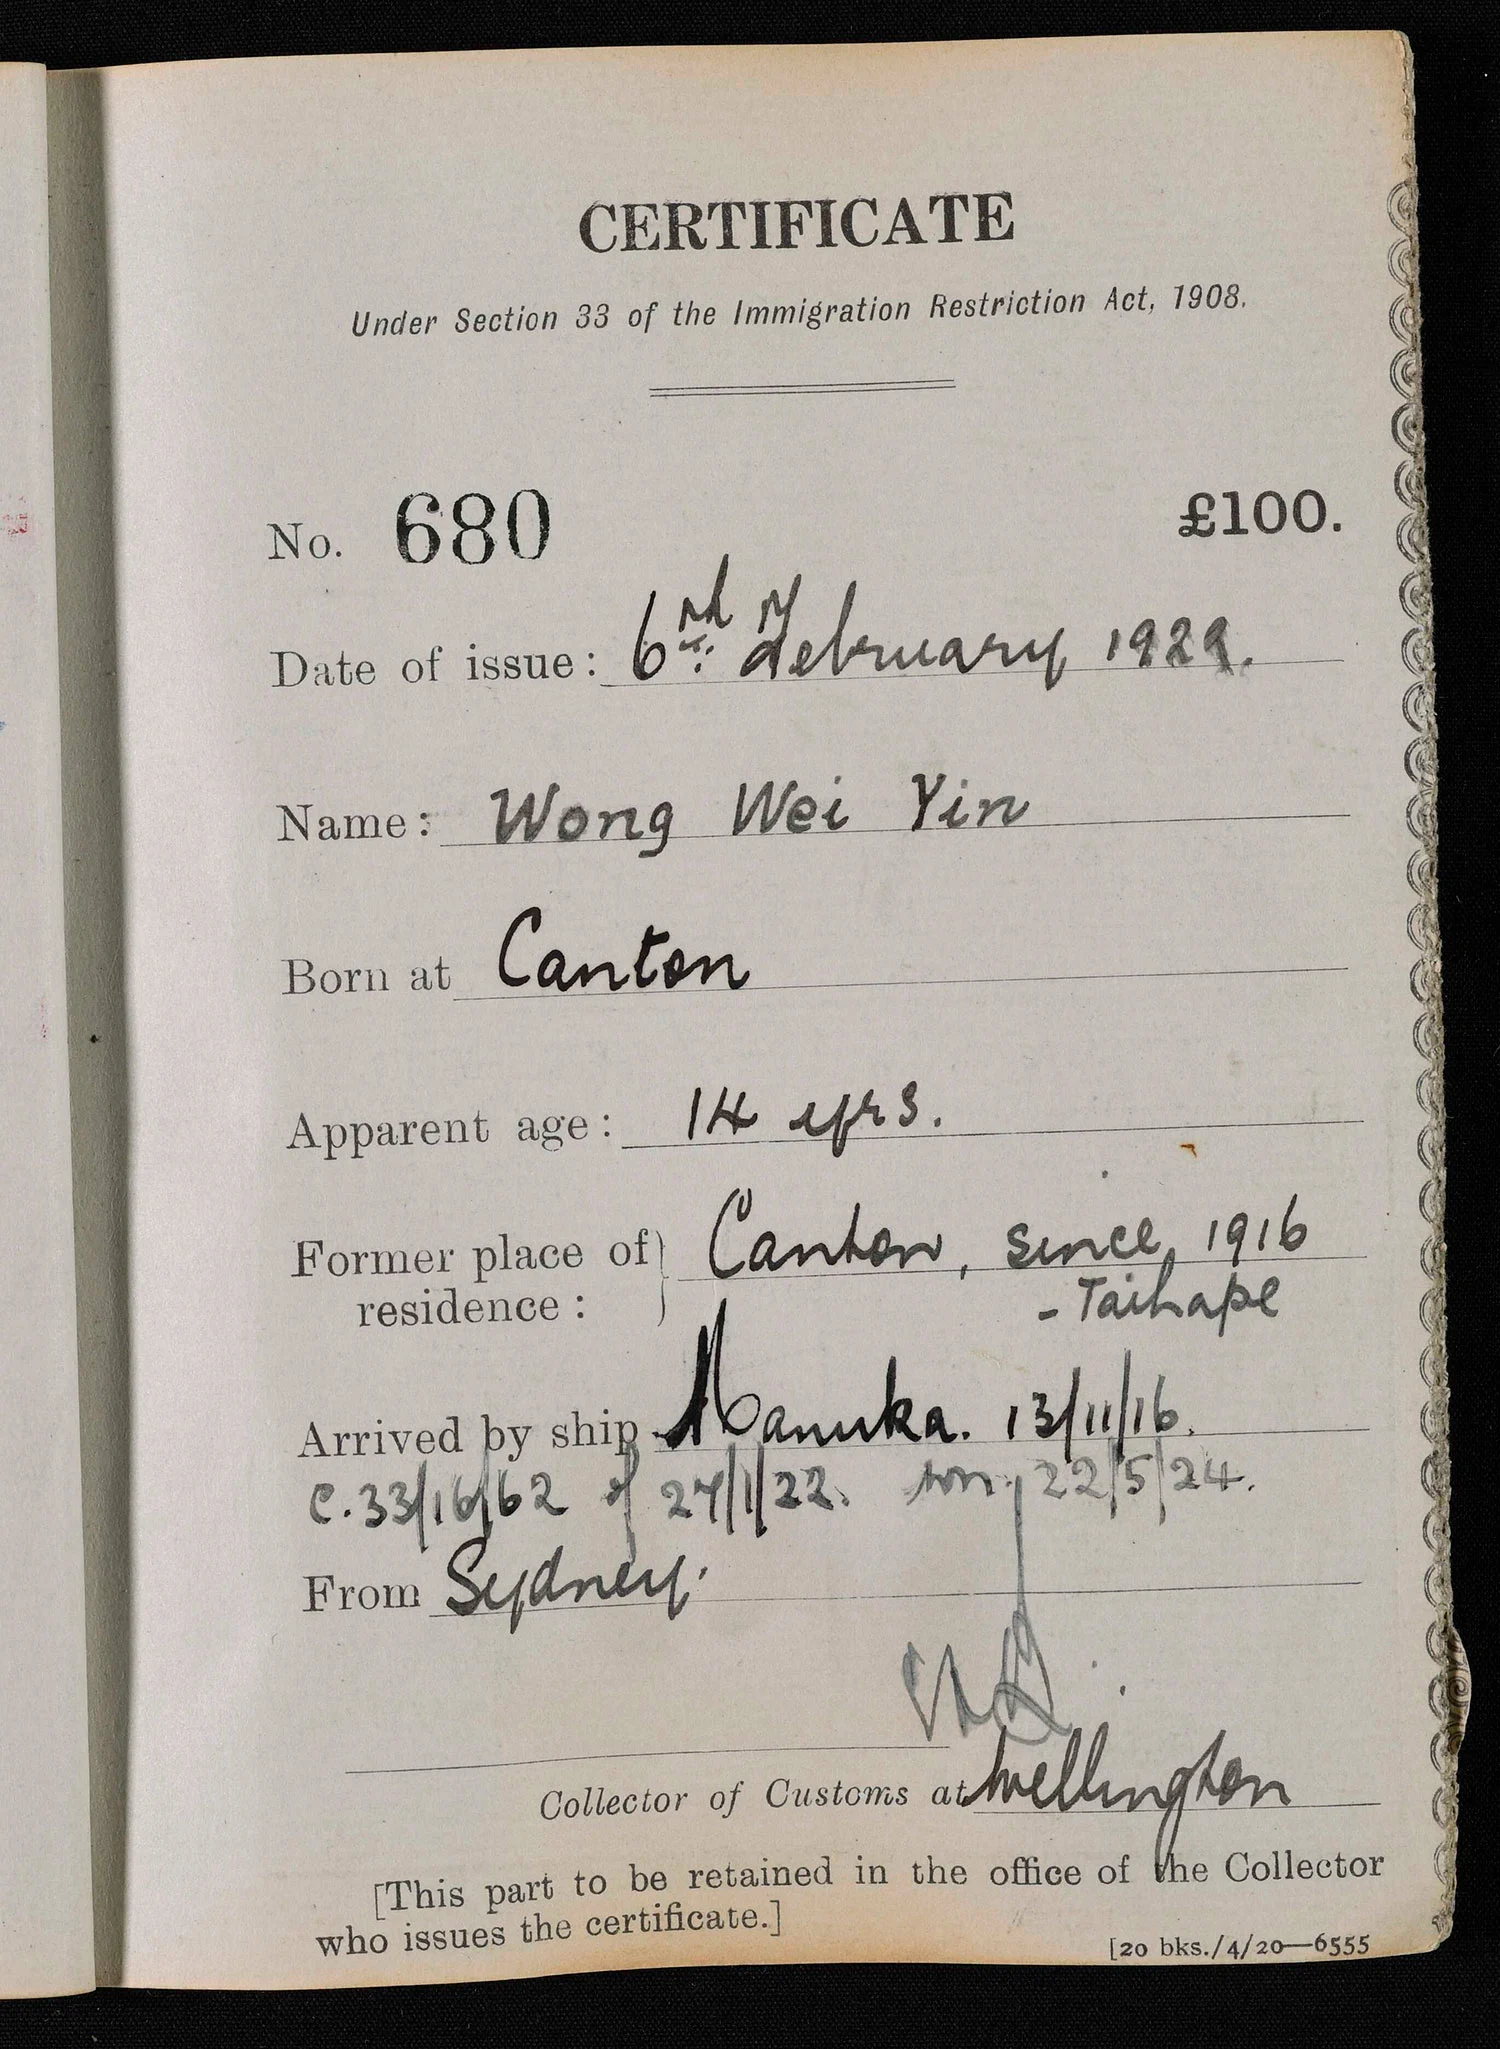 CERTIFICATE
Under Section 33 of the Immigration Restriction Act, 1908.
No. 680 £100.
Date of issue: 6 February 1922.
Name: Wong Wei Yin
Born at Canton
Apparent age: 14 yrs.
Former place of residence: Canton, since 1916
- Taihape
Arrived by ship Manuka. 13/11/16.
C.33/16/62 of 27/1/22. 22/5/24.
From Sydney.
Collector of Customs at Wellington
[This part to be retained in the office of the Collector
who issues the certificate.]
[20 bks./4/20—6555